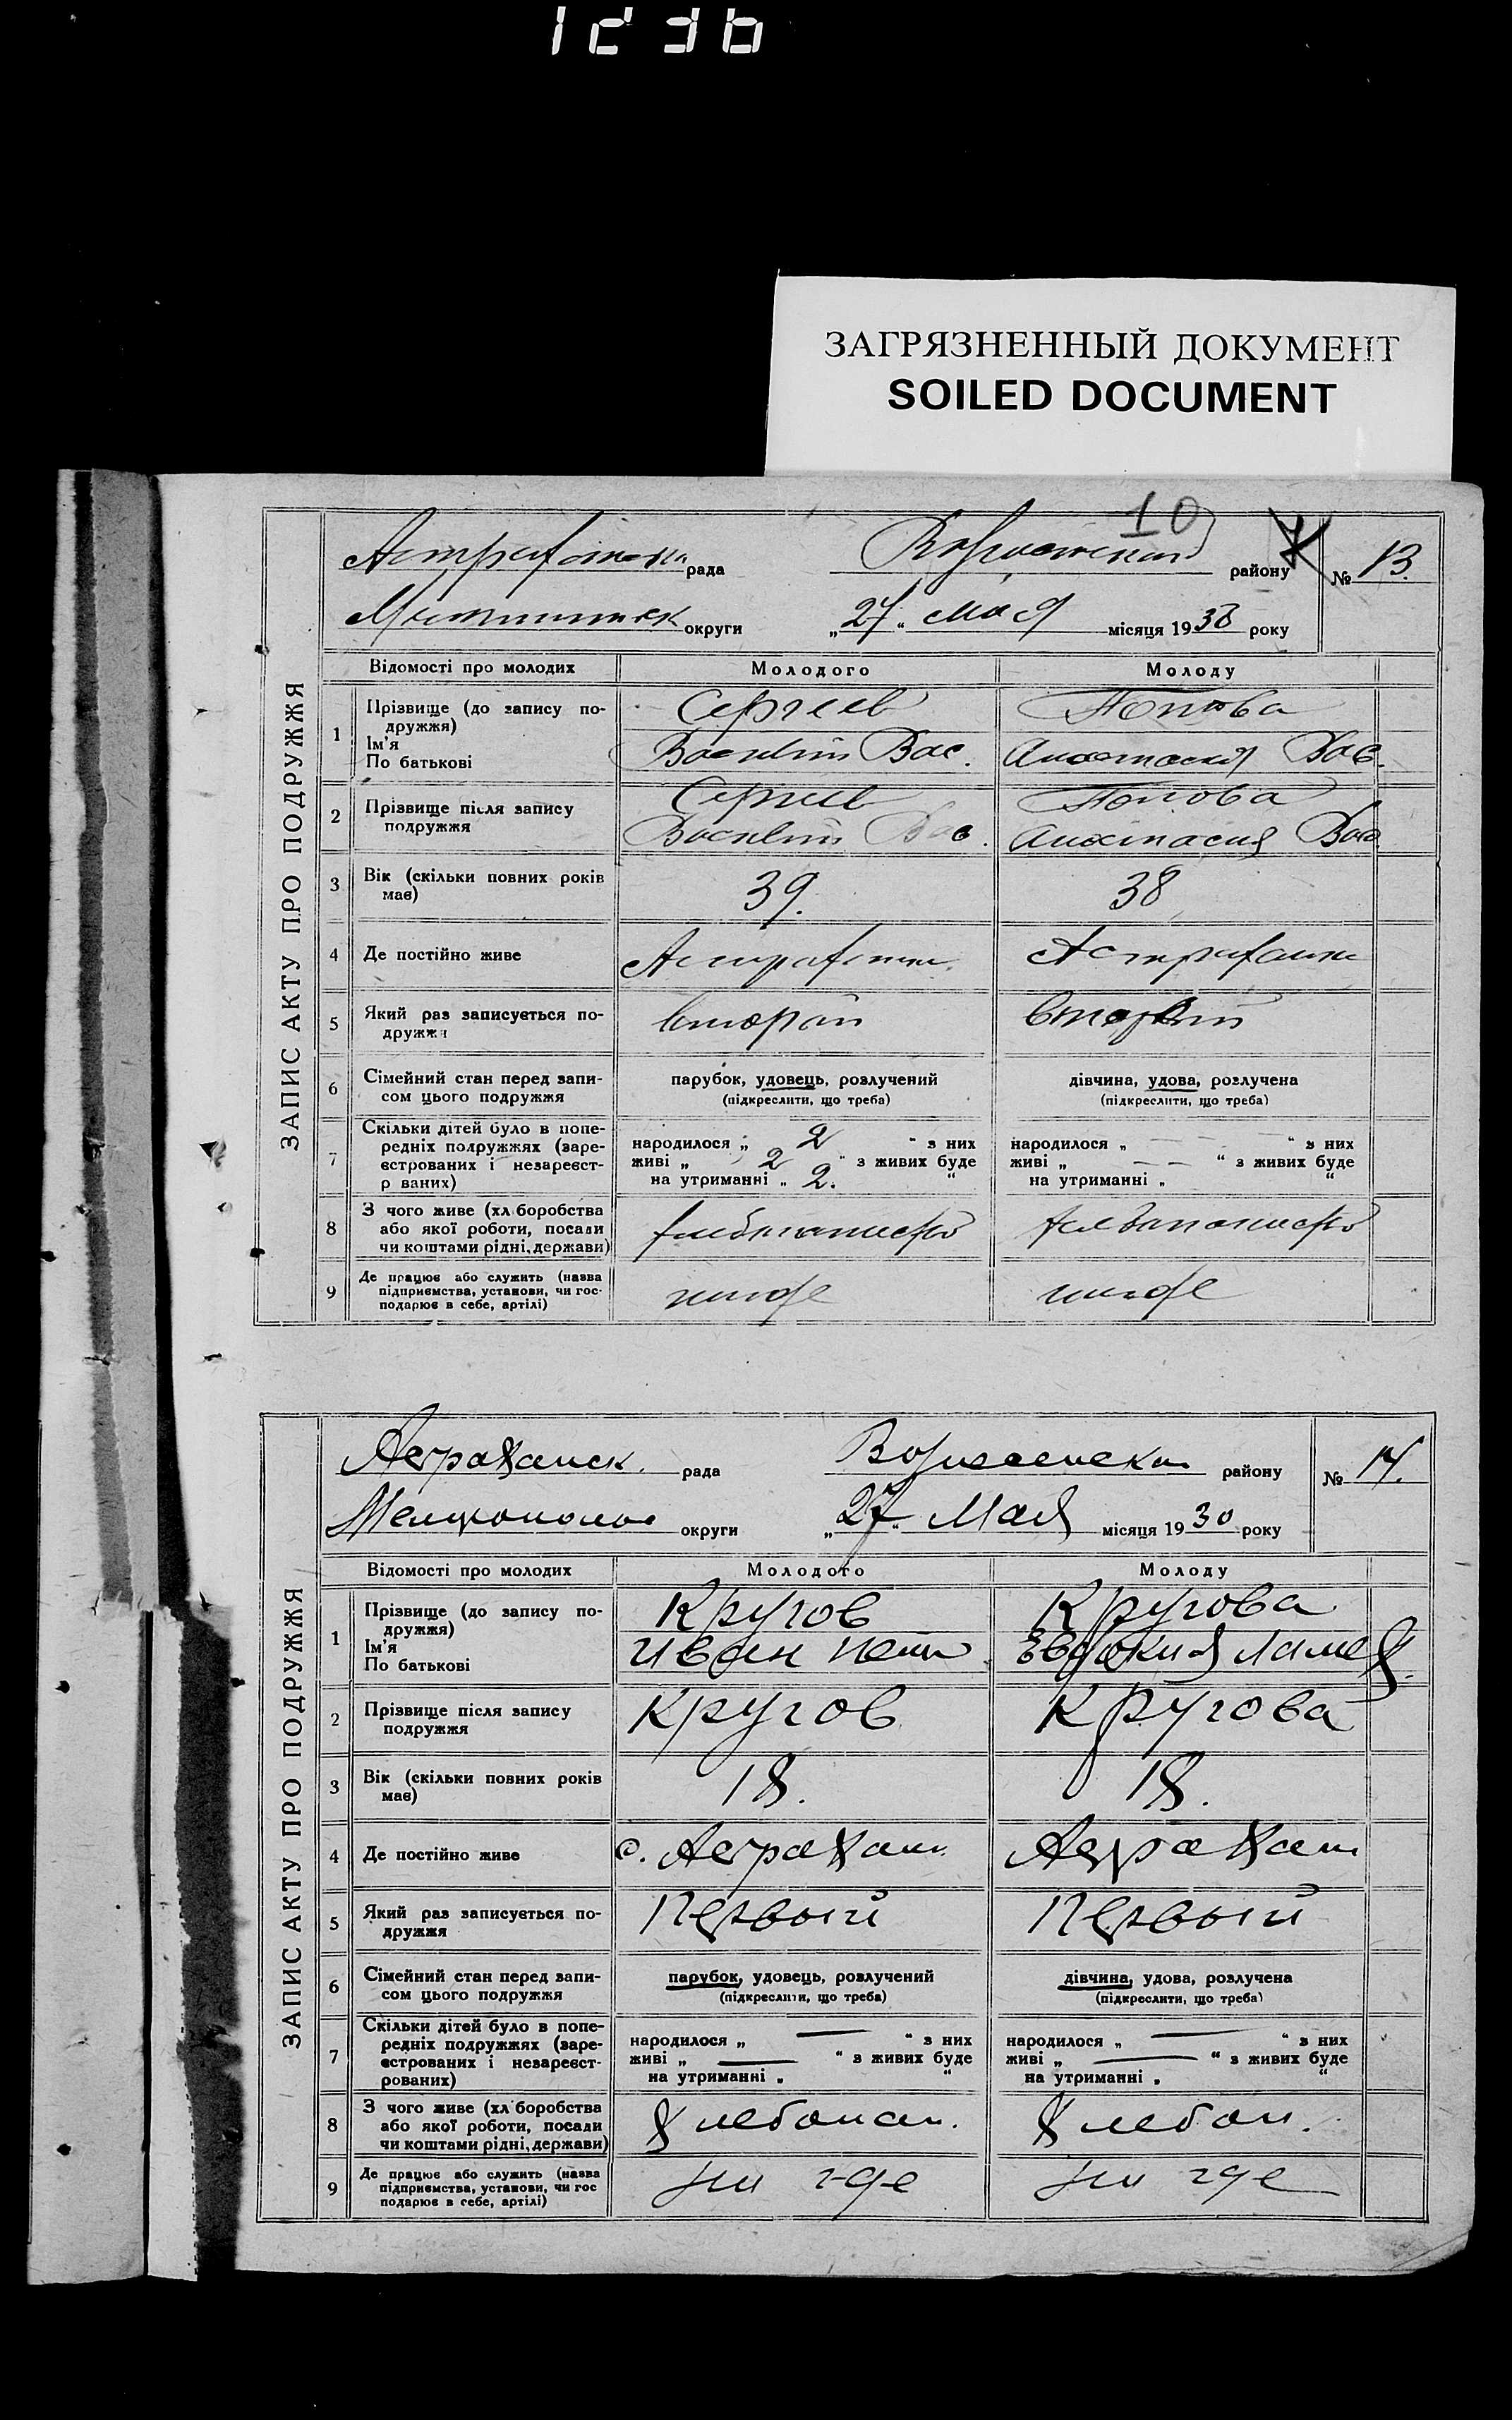 1236
ЗАГРЯЗНЕННЫЙ ДОКУМЕНТ
SOILED DOCUMENT
10
ЗАПИС АКТУ ПРО ПОДРУЖЖЯ
рада району № 13.
округи „27“ мая місяця 1930 року
Відомості про молодих Молодого Молоду
1 Прізвище (до запису по-
дружжя)
Ім'я
По батькові
Сергеев Попова
Василий Вас. Анастасия Вас.
2 Прізвище після запису
подружжя
Сергеев Попова
Василий Вас. Анастасия Вас
3 Вік (скільки повних років
має)
39. 38
4 Де постійно живе Астраханка
5 Який раз записується по-
дружжя
вторый вторый
6 Сімейний стан перед запи-
сом цього подружжя
парубок, удовець, розлучений дівчина, удова, розлучена
(підкреслити, що треба) (підкреслити, що треба)
7 Скільки дітей було в попе-
редніх подружжях (заре-
єстрованих і незареєст-
р ваних)
народилося „ 2 “ з них народилося „ — “ з них
живі „ 2 “ з живих буде живі „ — — “ з живих буде
на утриманні „ 2. “ на утриманні „ “
8 З чого живе (хліборобства
або якої роботи, посади
чи коштами рідні, держави)
9 Де працює або служить (назва
підприємства, установи, чи гос-
подарює в себе, артілі)
нигде нигде
ЗАПИС АКТУ ПРО ПОДРУЖЖЯ
Астраханск. рада району № 14.
округи „27“ Мая місяця 1930 року
Відомості про молодих Молодого Молоду
1 Прізвище (до запису по-
дружжя)
Ім'я
По батькові
Кругов Кругова
Иван Евдокия
2 Прізвище після запису
подружжя
Кругов Кругова
3 Вік (скільки повних років
має)
18. 18.
4 Де постійно живе с. Астрахан Астрахан
5 Який раз записується по-
дружжя
Первый Первый
6 Сімейний стан перед запи-
сом цього подружжя
парубок, удовець, розлучений дівчина, удова, розлучена
(підкреслити, що треба) (підкреслити, що треба)
7 Скільки дітей було в попе-
редніх подружжях (заре-
єстрованих і незареєст-
рованих)
народилося „ — “ з них народилося „ — “ з них
живі „ — “ з живих буде живі „ — “ з живих буде
на утриманні „ “ на утриманні „ “
8 З чого живе (хліборобства
або якої роботи, посади
чи коштами рідні, держави)
Хлебопаш. Хлебоп.
9 Де працює або служить (назва
підприємства, установи, чи гос
подарює в себе, артілі)
ни где ни где